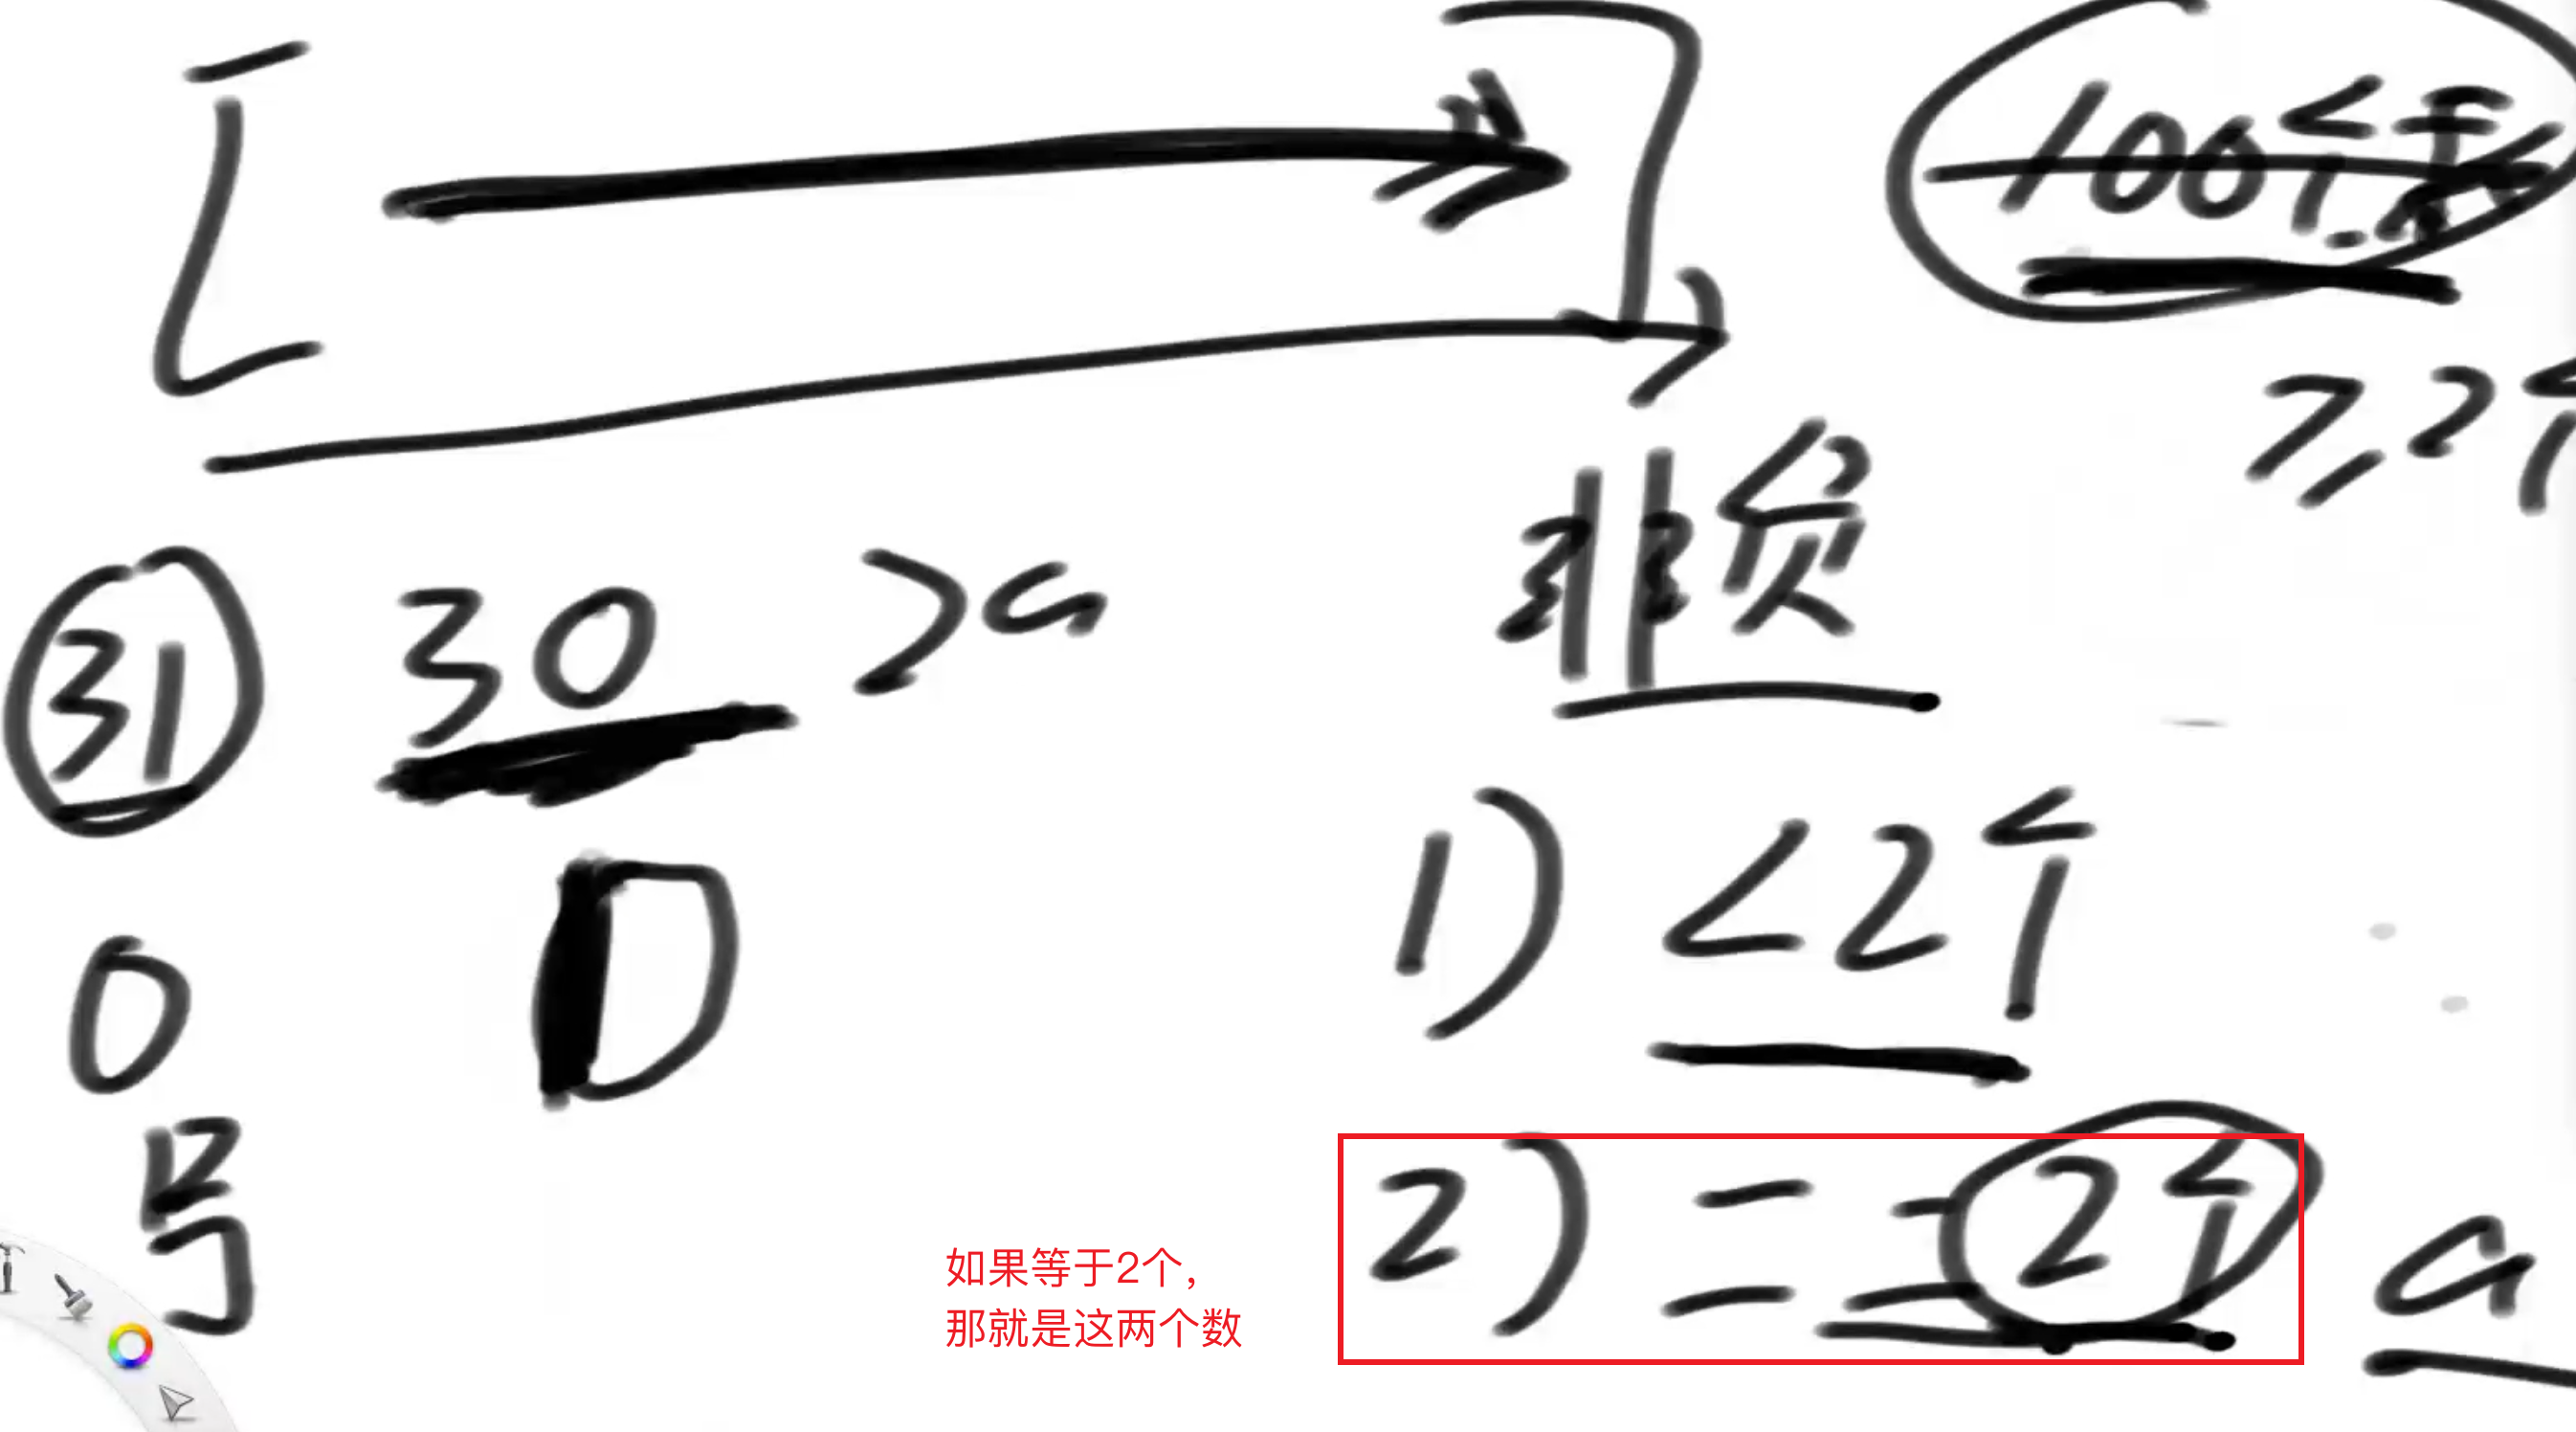 100个
≥2个
31 30 >a
非负
0
号
1) <2个
2) ==2个 a
如果等于2个，
那就是这两个数